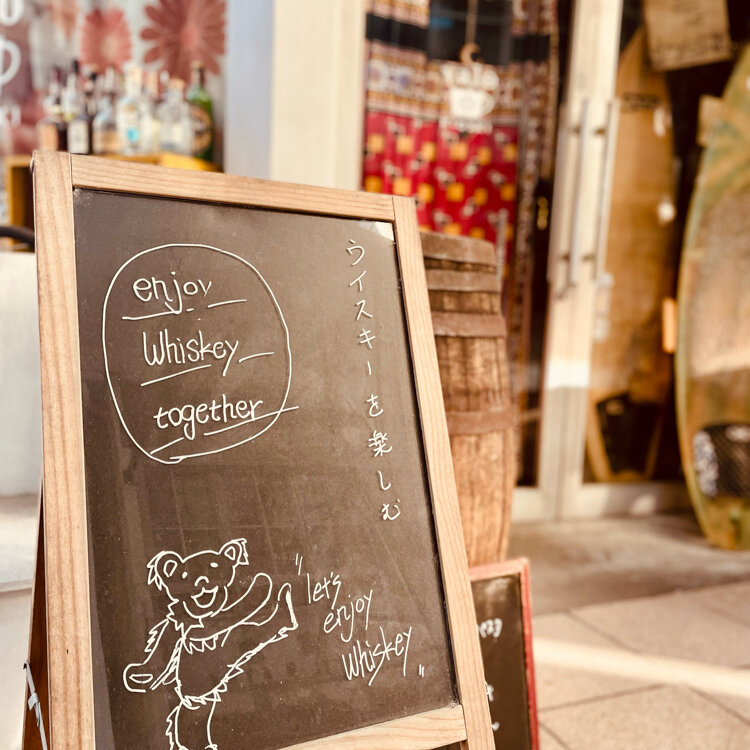 enjoy
Whiskey
together
ウイスキーを楽しむ
"let's
enjoy
Whiskey"